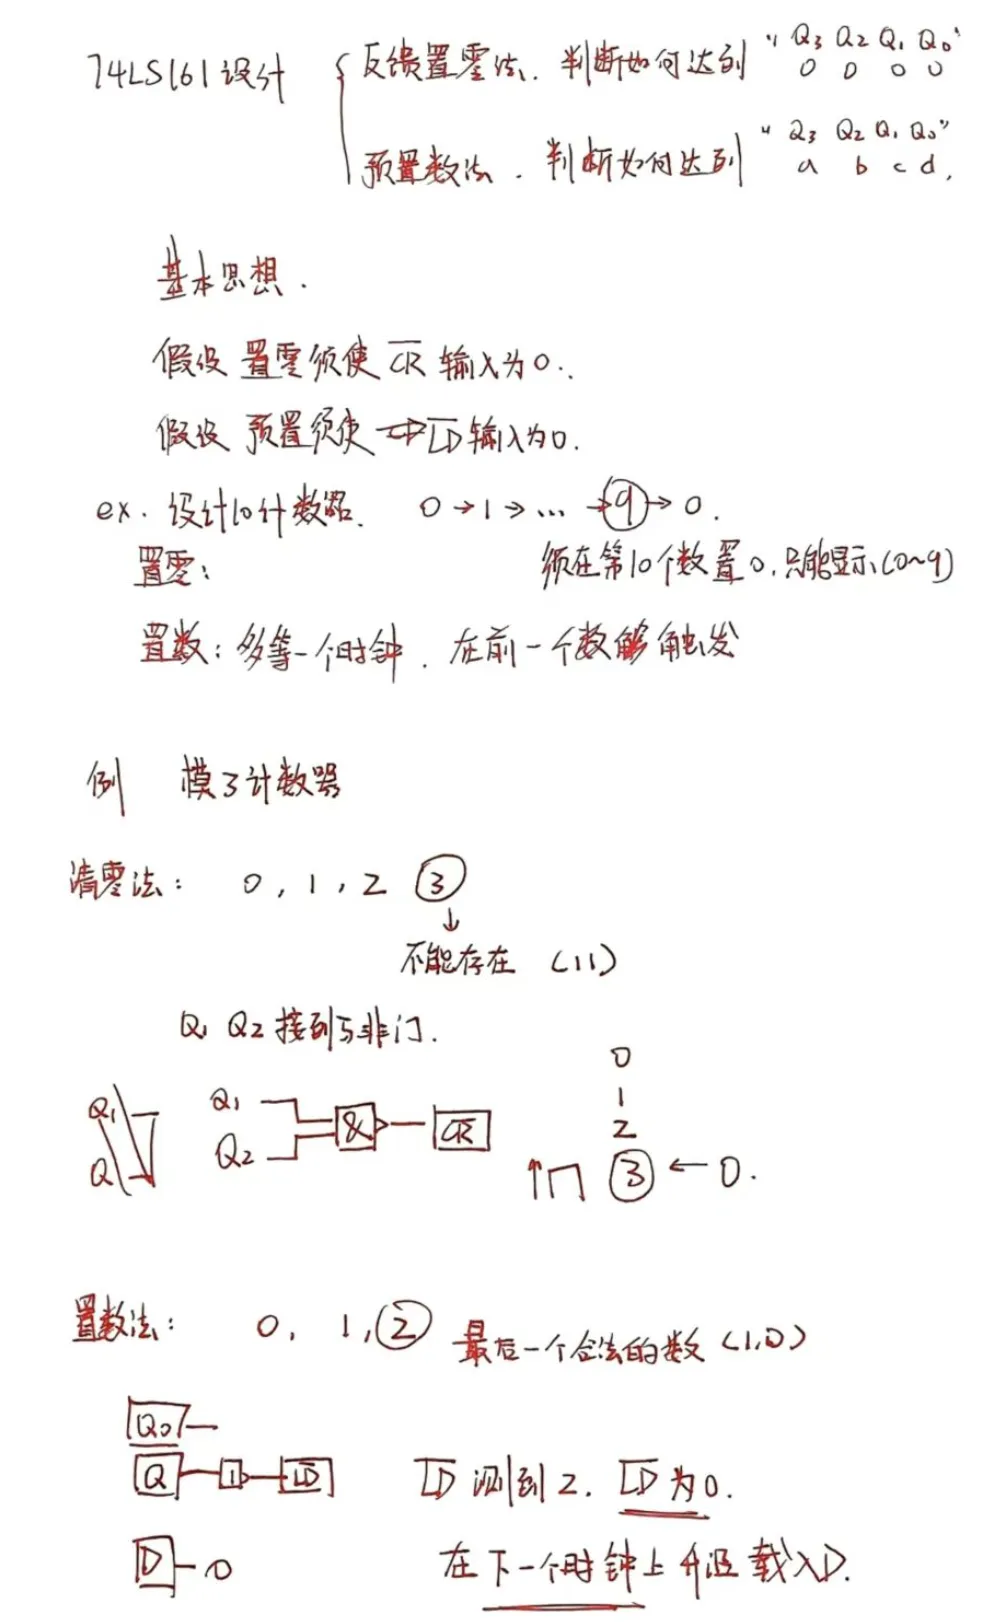 74LS161设计
反馈置零法. 判断如何达到 "Q3 Q2 Q1 Q0"
0 0 0 0
预置数法. 判断如何达到 "Q3 Q2 Q1 Q0"
a b c d.
基本思想.
假设 置零须使 C̅R̅ 输入为0.
假设 预置须使 L̅D̅ 输入为0.
ex. 设计10计数器. 0→1→...→9→0.
置零: 须在第10个数置0,只能显示(0~9)
置数: 多等一个时钟. 在前一个数 触发
例 模3计数器
清零法: 0, 1, 2 ③
↓
不能存在 (11)
Q1 Q2 接到与非门.
0
1
2
③ ← 0.
Q1
Q
Q1
Q2
&
C̅R̅
置数法: 0, 1, ② 最后一个合法的数 (1,0)
Q0
Q 1 L̅D̅ L̅D̅ 测到2. L̅D̅ 为0.
D 0 在下一个时钟上升沿载入D.